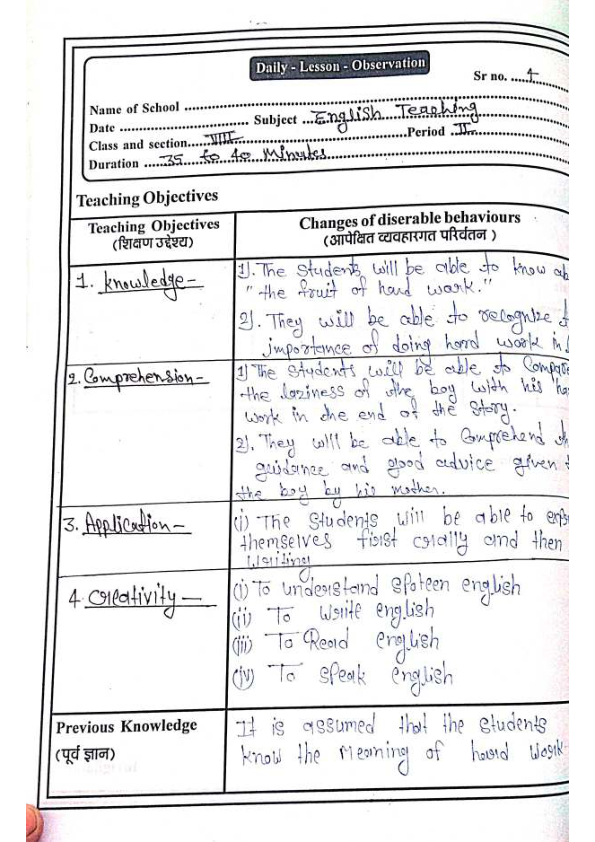 Daily - Lesson - Observation
Sr no. .... 1
Name of School ..........
Date .......... Subject ...English Teaching
Class and section.....VIII..........Period ..II..
Duration .....35 to 40 Minutes..........
Teaching Objectives
Teaching Objectives
(शिक्षण उद्देश्य)
Changes of diserable behaviours
(आपेक्षित व्यवहारगत परिर्वतन )
1. Knowledge -
1). The Students will be able to know
"the fruit of hard work."
2). They will be able to recognize
importance of doing hard work in
2. Comprehension -
1) The Students will be able to Compare
the laziness of the boy with his
work in the end of the Story.
2). They will be able to Comprehend
guidance and good advice given
the boy by his mother.
3. Application -
(i) The Students will be able to
themselves first orally and then
Writing
4 Creativity -
(i) To understand spoteen english
(ii) To Write english
(iii) To Read english
(iv) To Speak english
Previous Knowledge
(पूर्व ज्ञान)
It is assumed that the students
know the Meaning of hard work